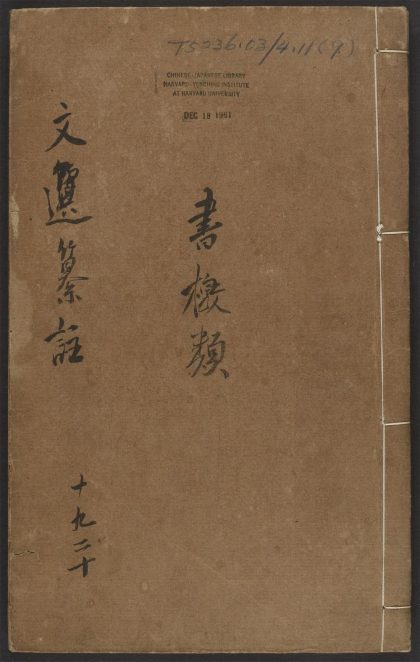 T5236.03/4.11(9)
CHINESE-JAPANESE LIBRARY
HARVARD-YENCHING INSTITUTE
AT HARVARD UNIVERSITY
DEC 18 1961
書檄類
文選纂註
十九二十